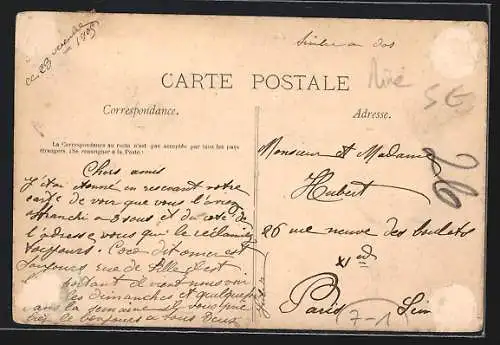 ce 28 novembre
Timbre au dos
CARTE POSTALE
Correspondance.
Adresse.
La Correspondance au recto n'est pas acceptée par tous les pays
étrangers. (Se renseigner à la Poste.)
Chers amis
J'étai étonné en recevant votre
carte de voir que vous l'avez
afranchi a 3 sous et du coté de
l'adresse vous que la
toujours. Coco dit omer est
toujours rue de Lille il est
portant il vient nous voir
les dimanches et quelquefois
dans la semaine
bonjours a tous deux
Monsieur et Madame
Hubert
26 rue neuve des boulets
XI
Paris
26
7-1